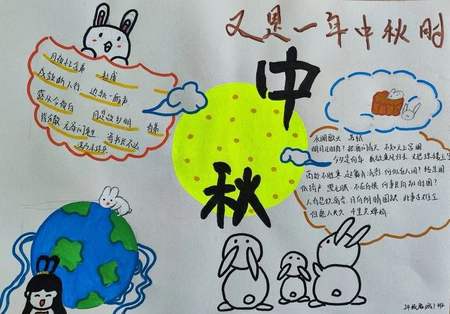 又是一年中秋时
中
秋
月夜忆舍弟 杜甫
戍鼓断人行 边秋一雁声
露从今夜白 月是故乡明 有弟
皆分散 无家问死生 寄书长不达
况乃未休兵
水调歌头 苏轼
明月几时有？把酒问青天 不知天上宫阙
今夕是何年 我欲乘风归去 又恐琼楼玉宇
高处不胜寒 起舞弄清影 何似在人间？转朱阁
低绮户 照无眠 不应有恨 何事长向别时圆？
人有悲欢离合 月有阴晴圆缺 此事古难全
但愿人长久 千里共婵娟